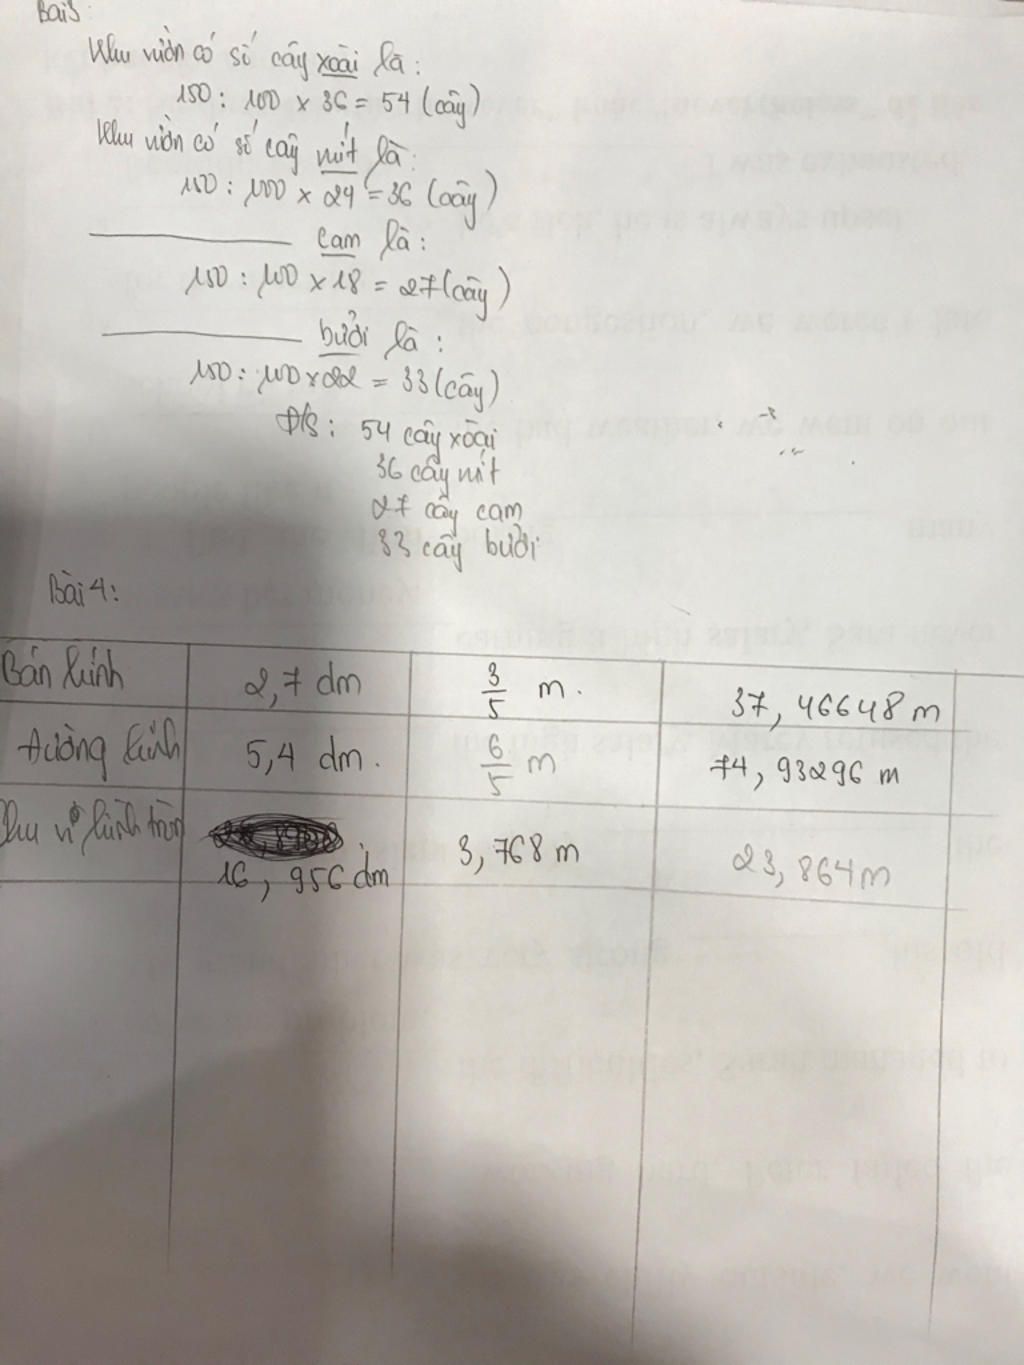 Bài 3:
Khu vườn có số cây xoài là:
150 : 100 x 36 = 54 (cây)
Khu vườn có số cây mít là:
150 : 100 x 24 = 36 (cây)
cam là:
150 : 100 x 18 = 27 (cây)
bưởi là:
150 : 100 x 22 = 33 (cây)
Đ/S: 54 cây xoài
36 cây mít
27 cây cam
33 cây bưởi
Bài 4:
Bán kính 2,7 dm 3/5 m. 37,46648 m
Đường kính 5,4 dm. 6/5 m 74,93296 m
Chu vi hình tròn 16,956 dm 3,768 m 23,864 m